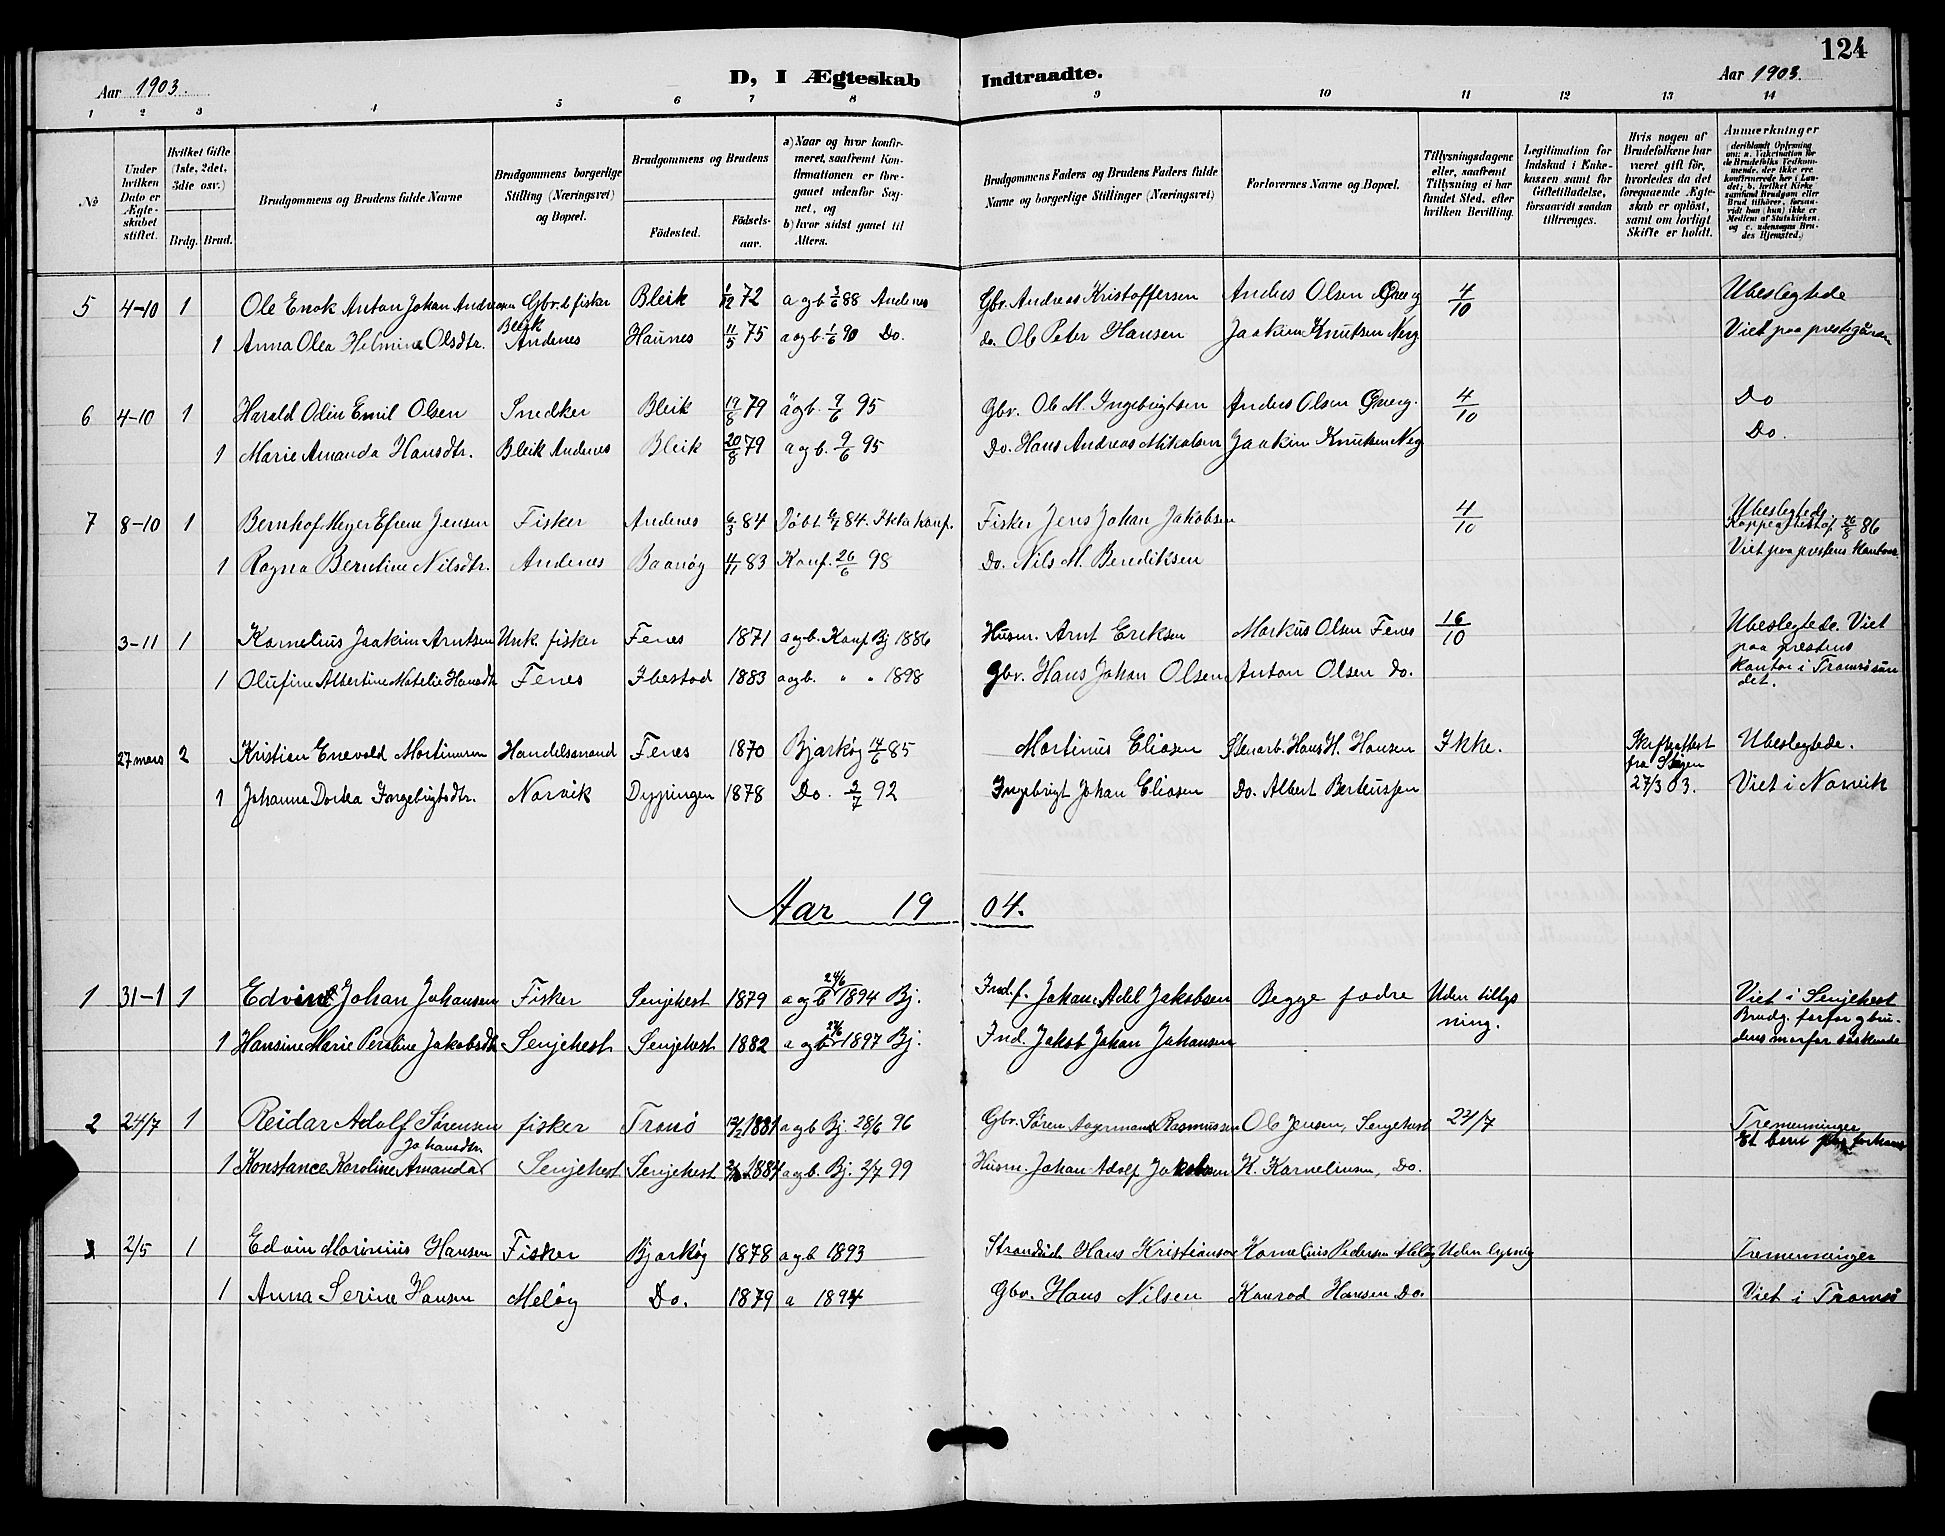 124
Aar 1903. D, I Ægteskab Indtraadte. Aar 1903.
1 2 3 4 5 6 7 8 9 10 11 12 13 14
No
Under hvilken Dato er Ægteskabet stiftet.
Hvilket Gifte (1ste, 2det, 3die osv.)
Brdg. Brud.
Brudgommens og Brudens fulde Navne
Brudgommens borgerlige Stilling (Næringsvei) og Bopæl.
Brudgommens og Brudens
Födested. Födselsaar.
a) Naar og hvor konfirmeret, saafremt Konfirmationen er foregaaet udenfor Sognet, og
b) hvor sidst gaaet til Alters.
Brudgommens Faders og Brudens Faders fulde Navne og borgerlige Stillinger (Næringsvei)
Forlovernes Navne og Bopæl.
Tillysningsdagene eller, saafremt Tillysning ei har fundet Sted, efter hvilken Bevilling.
Legitimation for Indskud i Enkekassen samt for Giftetilladelse, forsaavidt saadan tiltrænges.
Hvis nogen af Brudefolkene har været gift før, hvorledes da det foregaaende Ægteskab er oplöst, samt om lovligt Skifte er holdt.
Anmerkninger (deriblandt Oplysning om: a. Vakcination for de Brudefolks Vedkommende, der ikke ere konfirmerede her i Landet; b. hvilket Kirkesamfund Brudgom eller Brud tilhörer, forsaavidt han (hun) ikke er Medlem af Statskirken, og c. udensogns Brudes Hjemsted.)
5 4-10 1 Ole Enok Anton Johan Andreasen Gbr. & fisker Bleik 1/12 72 a og b 3/6 88 Andenes Gbr. Andreas Kristoffersen Anders Olsen 4/10 Ubeslegtede
Bleik
1 Anna Olea Helmine Olsdtr. Andenes Haunes 11/5 75 a og b. 1/6 90 Do. do. Ole Peter Hansen Joakim Knutsen Viet paa prestegaaren
6 4-10 1 Harald Odin Emil Olsen Snedker Bleik 19/8 79 a og b. 9/6 95 Gbr. Ole M. Ingebrigtsen Anders Olsen 4/10 Do
1 Marie Amanda Hansdtr. Bleik Andenes Bleik 20/8 79 a og b. 9/6 95 Do. Hans Andreas Mikalsen Joakim Knutsen Do.
7 8-10 1 Bernhof Meyer Efrem Jensen Fisker Andenes 6/3 84 Döbt 84. Ikke konf. Fisker Jens Johan Jakobsen 4/10 Ubeslegtede
26/8 86
1 Ragna Berntine Nilsdtr. Andenes 4/11 83 Konf. 26/6 98 Do. Nils M. Benediksen Viet paa prestens kontor
3-11 1 Kornelius Joakim Arntsen Unk. fisker Fenes 1871 a og b. Konf Bj 1886 Husm. Arnt Eriksen Markus Olsen Fenes 16/10 Ubeslegtede. Viet
paa prestens
1 Olufine Albertine Matelie Hansdtr Fenes Ibestad 1883 a og b. " " 1898 gbr. Hans Johan Olsen Anton Olsen Do. kontor i Tromsösun
det.
27 mars 2 Kristian Enevold Martinussen Handelsmand Fenes 1870 Bjarköy 14/6 85 Martinus Eliasen Stenarb. Hans H. Hansen Ikke. Skifteattest Ubeslegtede.
fra Steigen
1 Johanna Dorka Ingebrigtsdtr. Narvik Dyppingen 1878 Do. 3/7 92 Ingebrigt Johan Eliasen Do. Albert Berteussen 27/3 03. Viet i Narvik
Aar 19 04.
1 31-1 1 Edvin Johan Johansen Fisker Senjehest 1879 a og b 24/6 1894 Bj. Ind. f. Johan Adel Jakobsen Begge fædre Uden tillys Viet i Senjehest
ning. Brudg. farfar og bru-
1 Hansine Marie Peroline Jakobsdtr Senjehest Senjehest 1882 a og b 27/6 1897 Bj. Ind. Jakob Johan Johansen dens morfar söskende
2 24/7 1 Reidar Adolf Sörensen fisker Tranö 1881 a og b Bj. 28/6 96 Gbr. Sören Aagerman Rasmussen Ole Jensen, Senjehest 24/7 Tremenninger
Johansdtr.
1 Konstance Karoline Amanda Senjehest Senjehest 1884 a og b. Bj. 2/7 99 Husm. Johan Adolf Jakobsen K. Korneliusen, Do.
3 2/5 1 Edvin Marinius Hansen Fisker Bjarköy 1878 a og b 1893 Strandsid. Hans Kristiansen Kornelius Pedersen Melöy Uden lysning Tremenninger
1 Anna Serine Hansen Melöy Do. 1879 a 1894 Gbr. Hans Nilsen Konrad Hansen Do. Viet i Tromsö